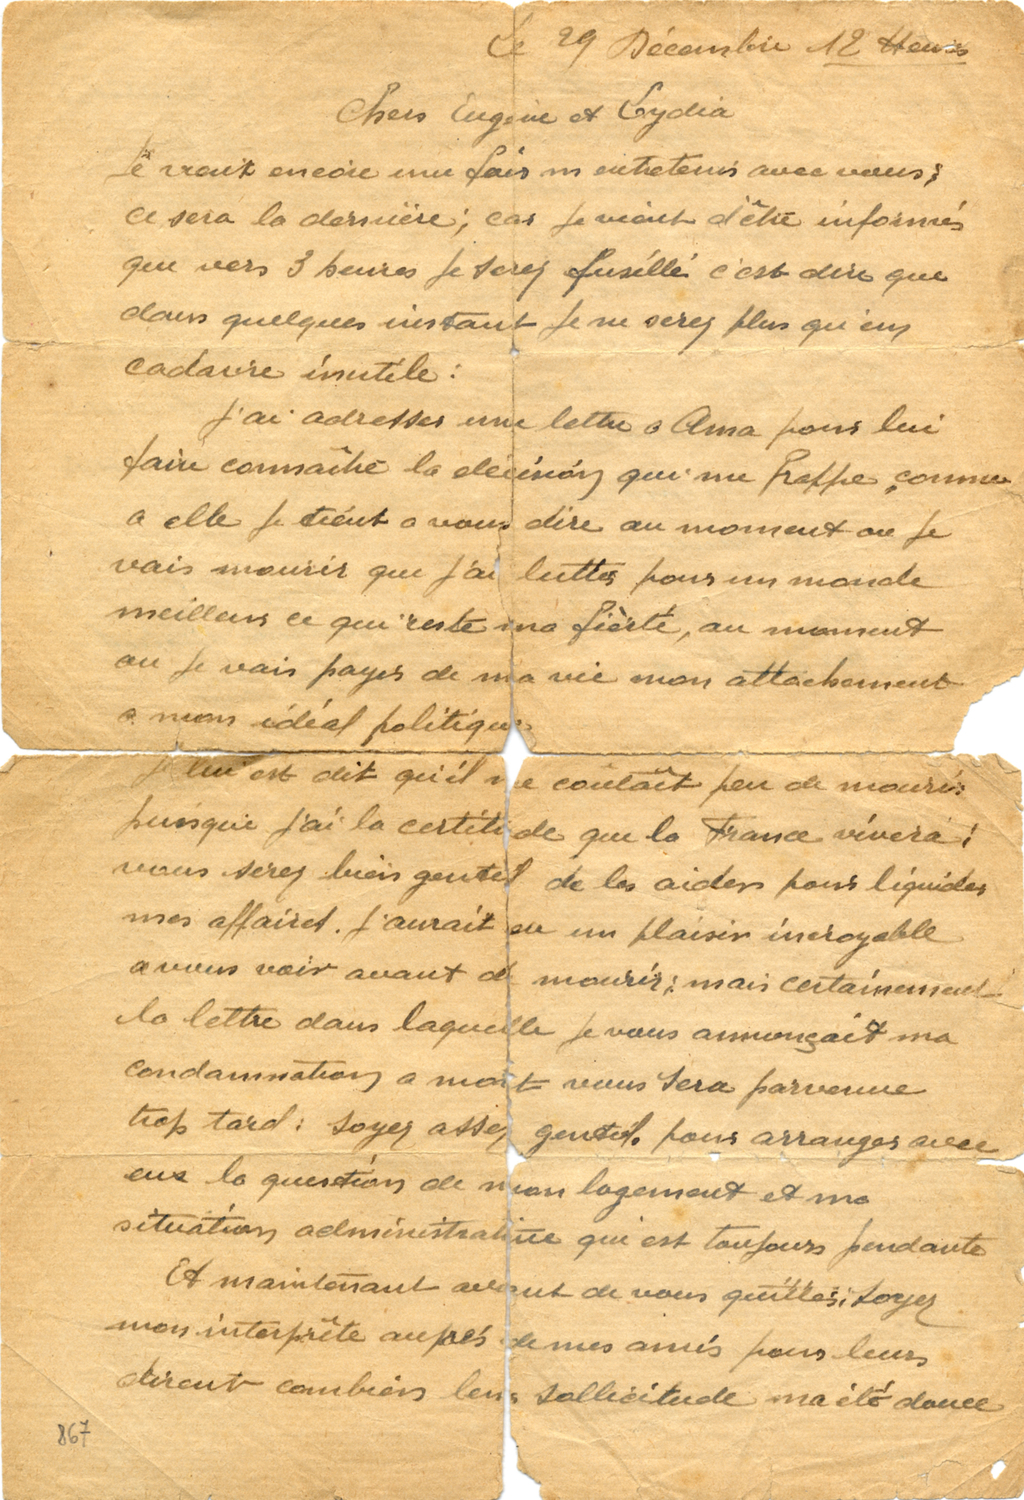 Le 29 Décembre 12 Heures
Chers Eugène et Lydia
Je veux encore une fois m entretenir avec vous;
ce sera la dernière; car je vient d'être informés
que vers 3 heures je serez fusillé c'est dire que
dans quelques instant je ne serez plus qu'un
cadavre inutile :
J'ai adresser une lettre a Ama pour lui
faire connaître la décision qui me frappe, comme
a elle je tient a vous dire au moment ou je
vais mourir que j'ai lutter pour un monde
meilleur ce qui reste ma fièrté, au moment
ou je vais payer de ma vie mon attachement
a mon idéal politique
Je lui est dit qu'il me coûtait peu de mourir
puisque j'ai la certitude que la France vivera;
vous serez bien gentil de les aider pour liquider
mes affaires. J'aurait eu un plaisir incroyable
a vous voir avant de mourir; mais certainement
la lettre dans laquelle je vous annonçait ma
condamnation a mort vous sera parvenue
trop tard : soyez assez gentil pour arranger avec
eux la question de mon logement et ma
situation administrative qui est toujours pendante
Et maintenant avant de vous quitter, soyez
mon interprête auprès de mes amis pour leurs
dirent combien leur sollicitude ma été douce
867